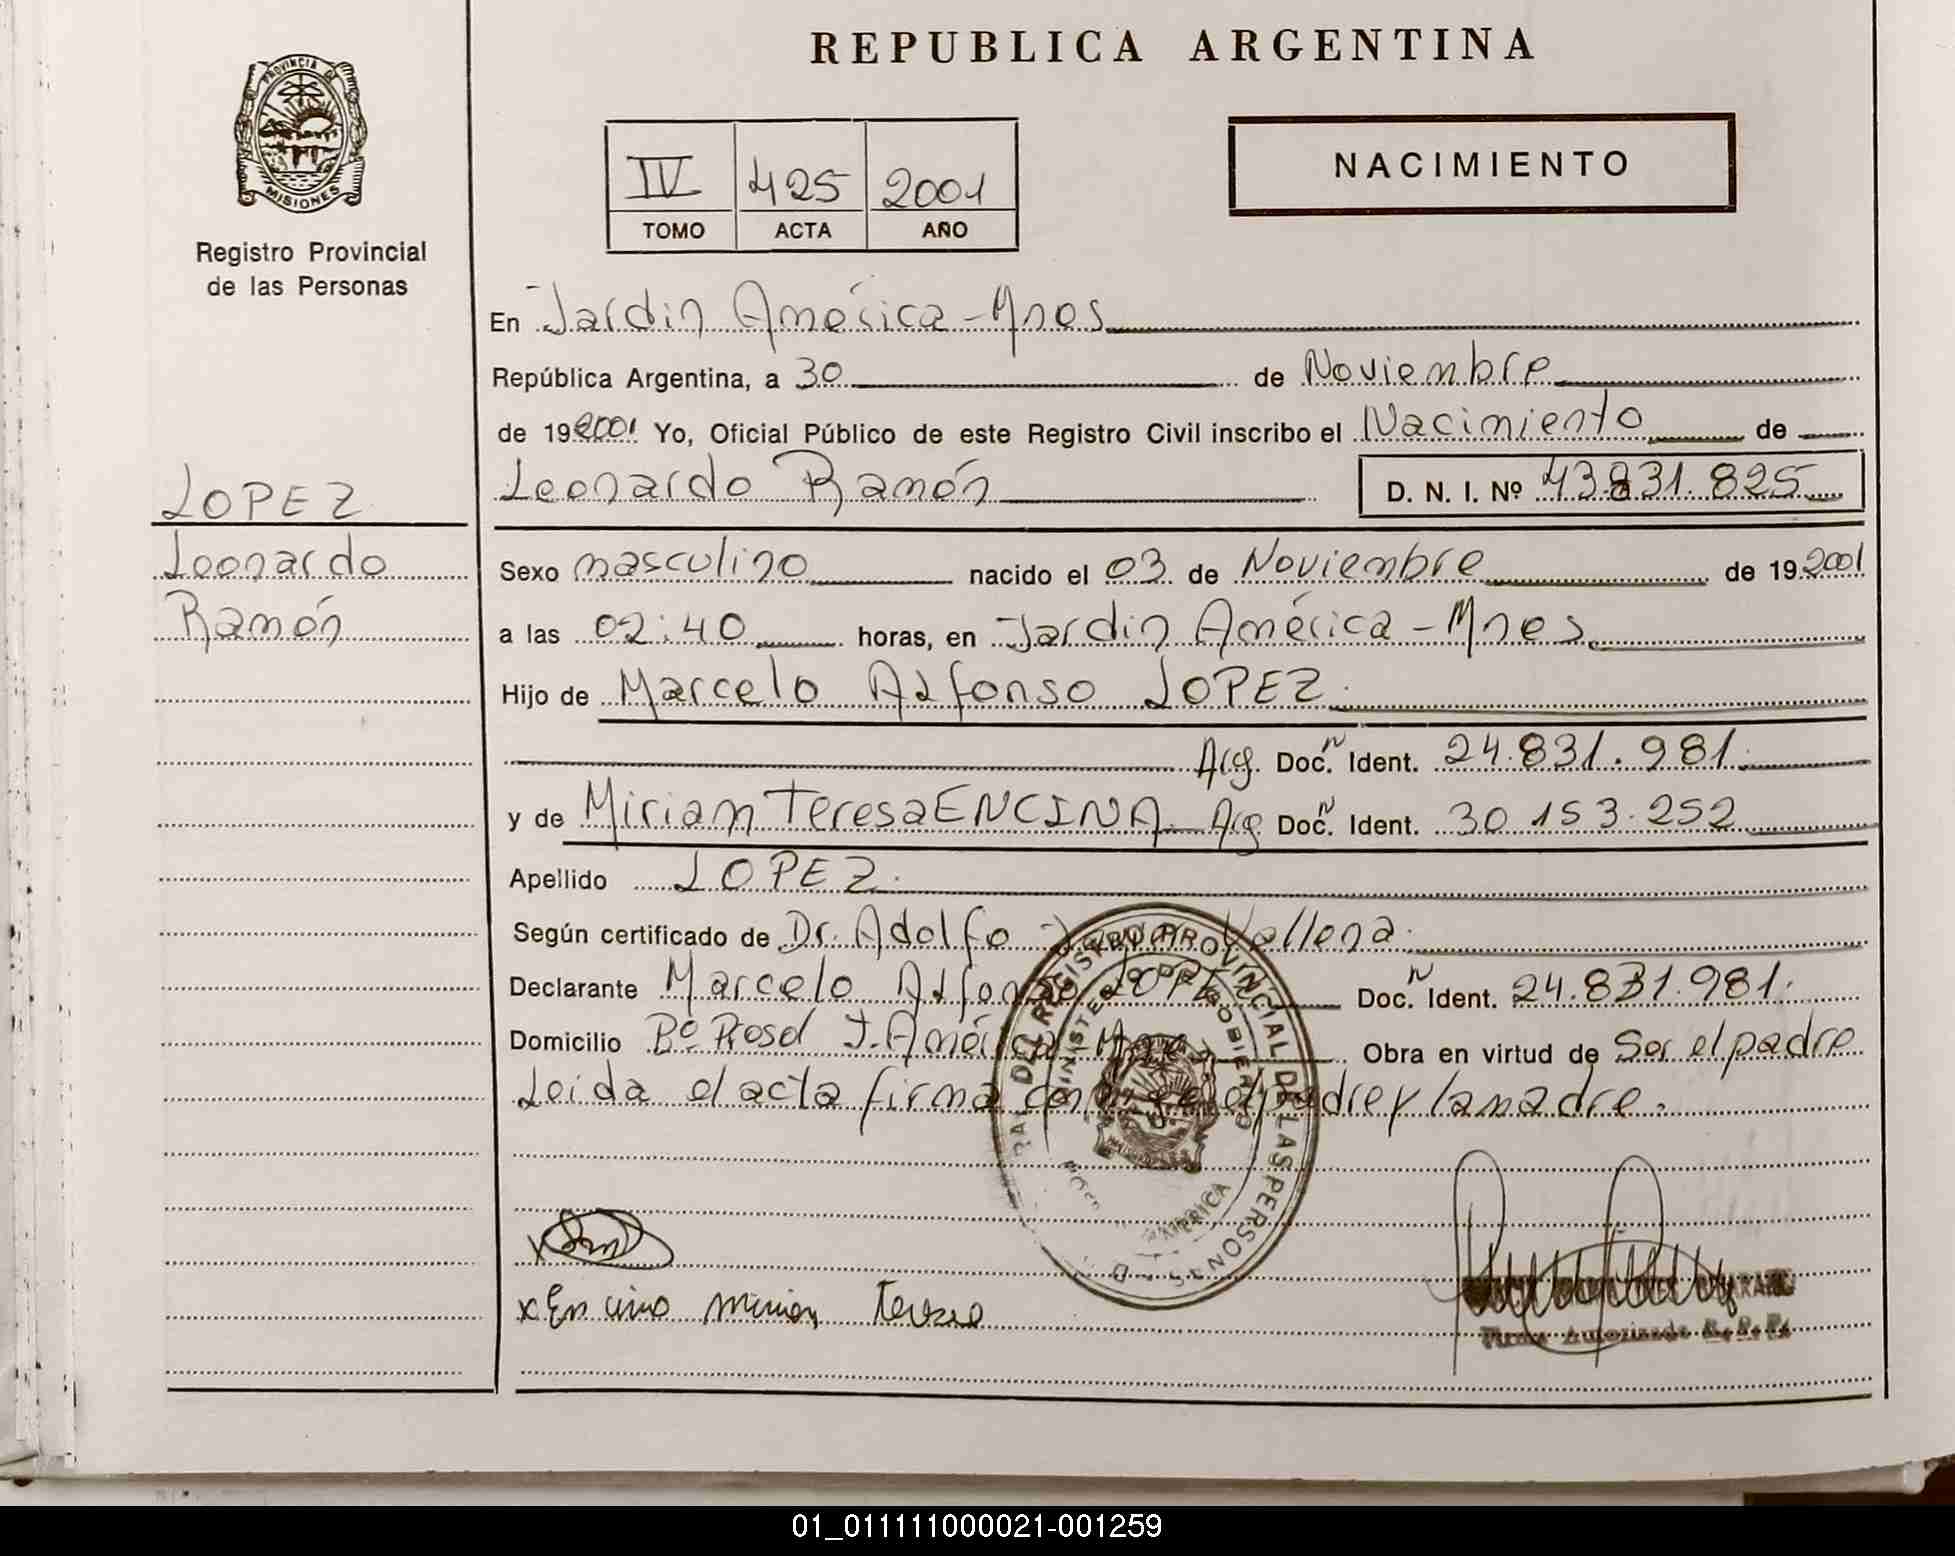 REPUBLICA ARGENTINA
PROVINCIA D
MISIONES
Registro Provincial
de las Personas
IV 425 2001
TOMO ACTA AÑO
NACIMIENTO
En Jardin América - Mnes
República Argentina, a 30 de Noviembre
de 19 2001 Yo, Oficial Público de este Registro Civil inscribo el Nacimiento de
Leonardo Ramón D. N. I. Nº 43.831.825
LOPEZ
Leonardo
Ramón
Sexo masculino nacido el 03 de Noviembre de 19 2001
a las 02:40 horas, en Jardin América - Mnes
Hijo de Marcelo Alfonso LOPEZ.
Arg. Doc. N Ident. 24.831.981.
y de Miriam Teresa ENCINA Arg. Doc. N Ident. 30.153.252
Apellido LOPEZ.
Según certificado de Dr. Adolfo Vallena.
Declarante Marcelo Alfonso LOPEZ Doc. N Ident. 24.831.981.
Domicilio Bº Rosd J. América Mnes. Obra en virtud de Ser el padre
Leida el acta firma el padre y la madre.
DEL REGISTRO PROVINCIAL DE LAS PERSONAS
MINISTERIO DE GOBIERNO
AMERICA
x
x Encina Mirian Teresa
Firma Autorizada R. P. P.
01_011111000021-001259